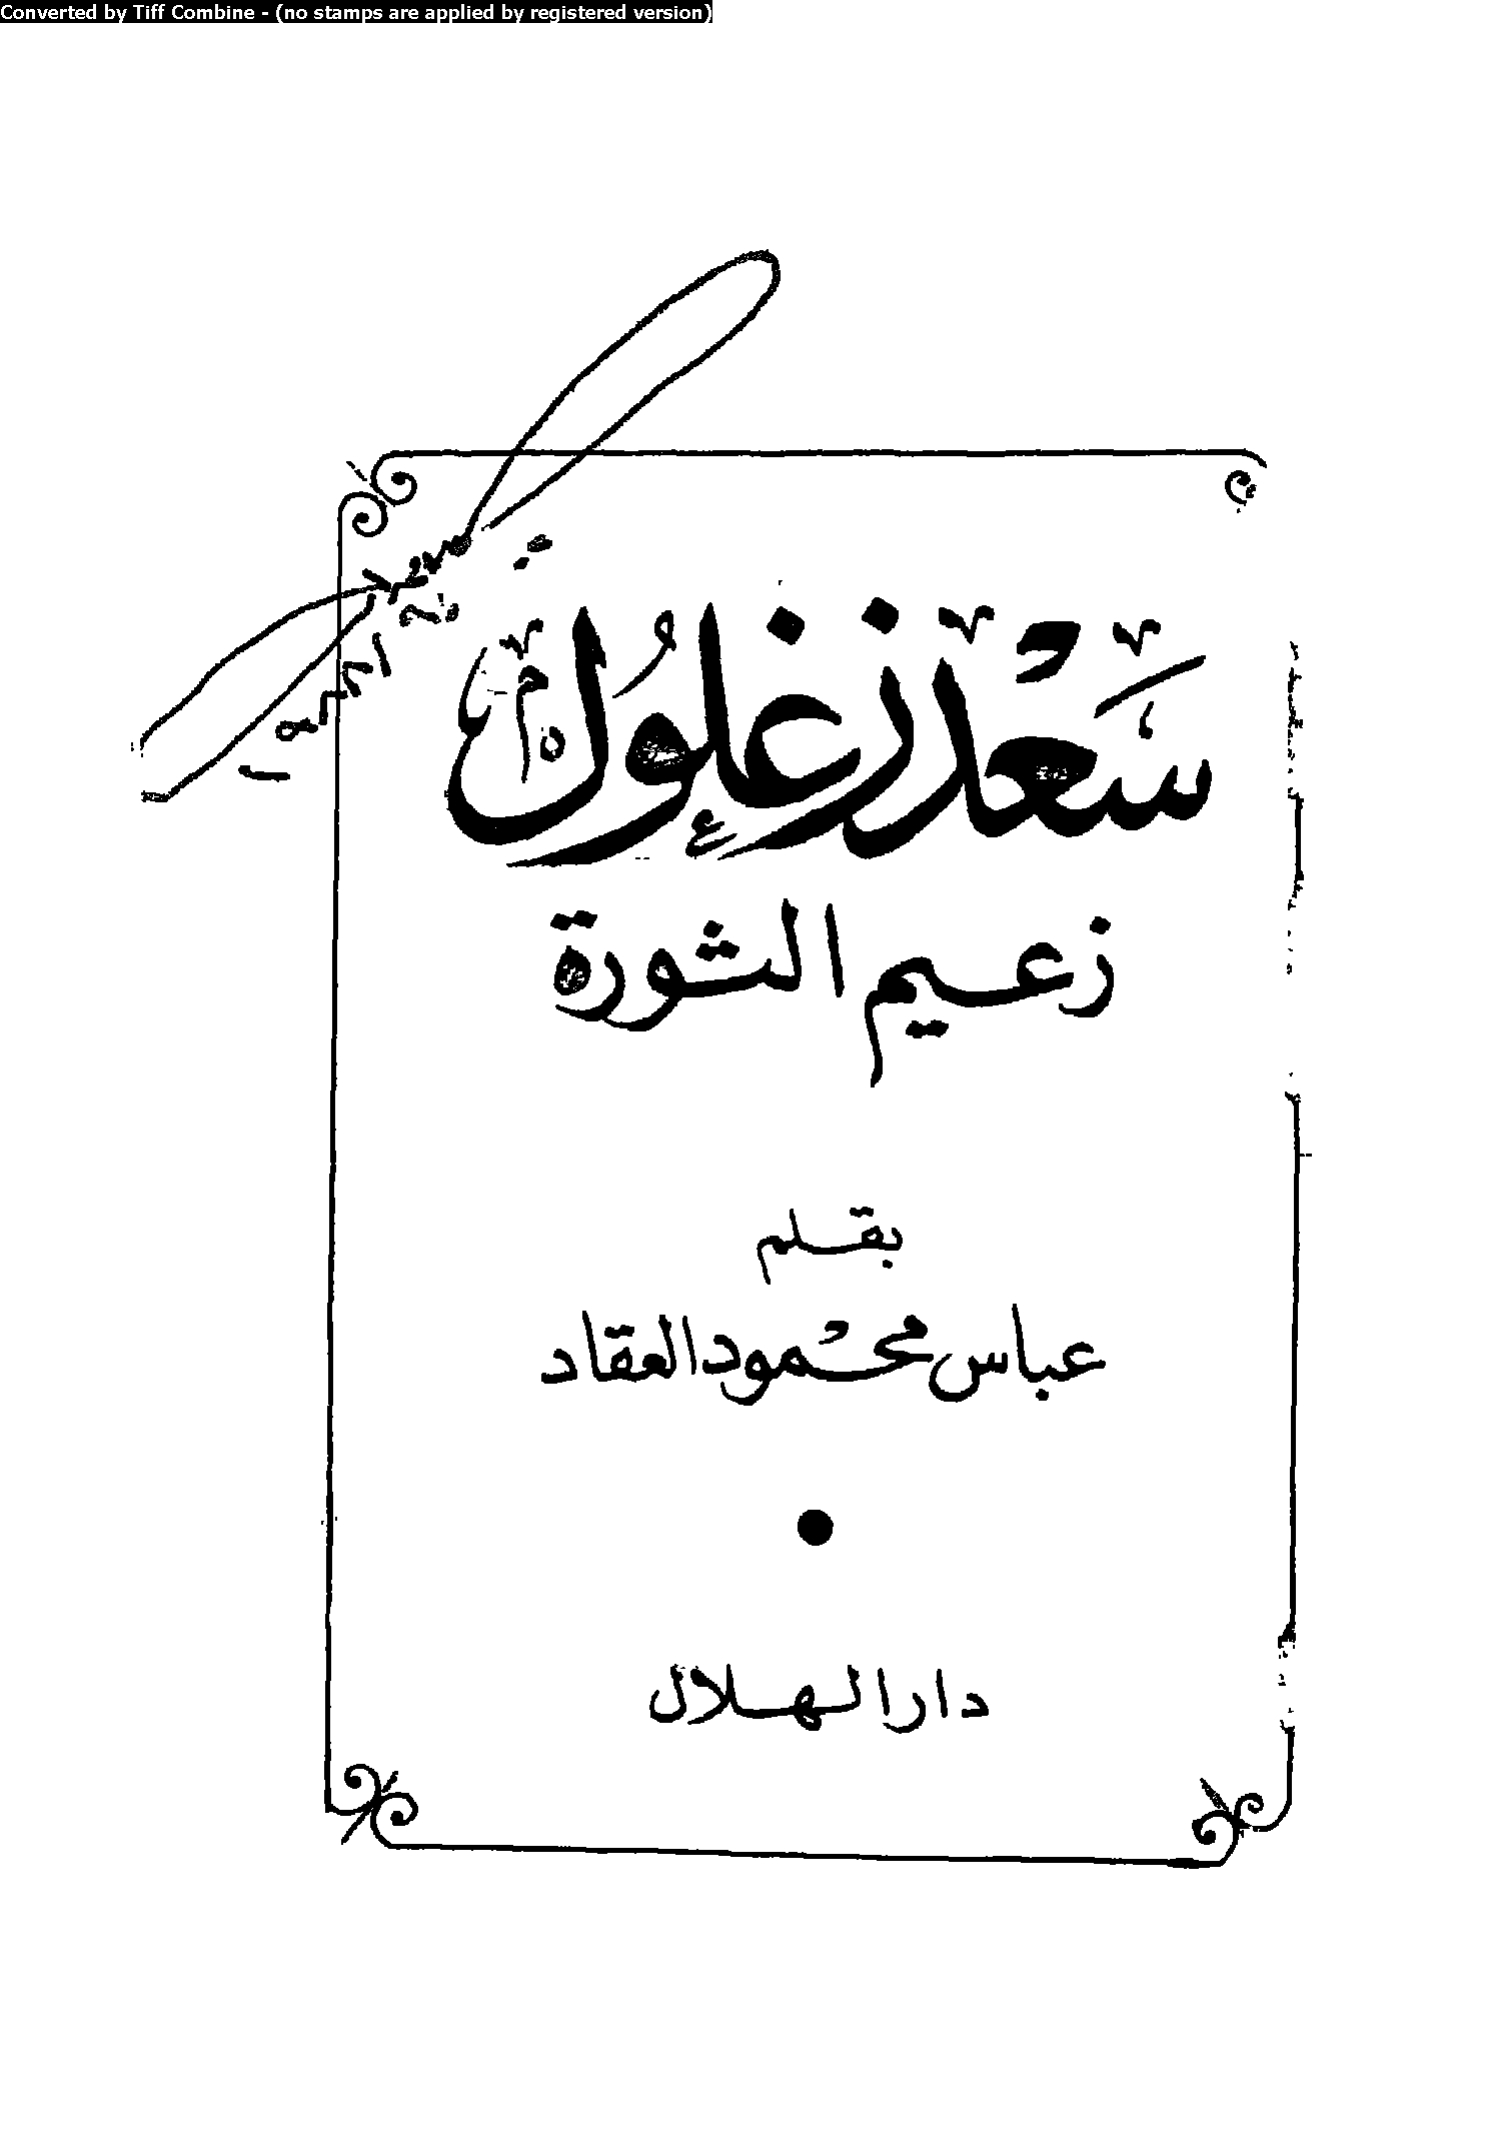 Converted by Tiff Combine - (no stamps are applied by registered version)
سَعْد زغلُول
زعيم الثورة
بقلم
عباس محمود العقاد
دار الهلال